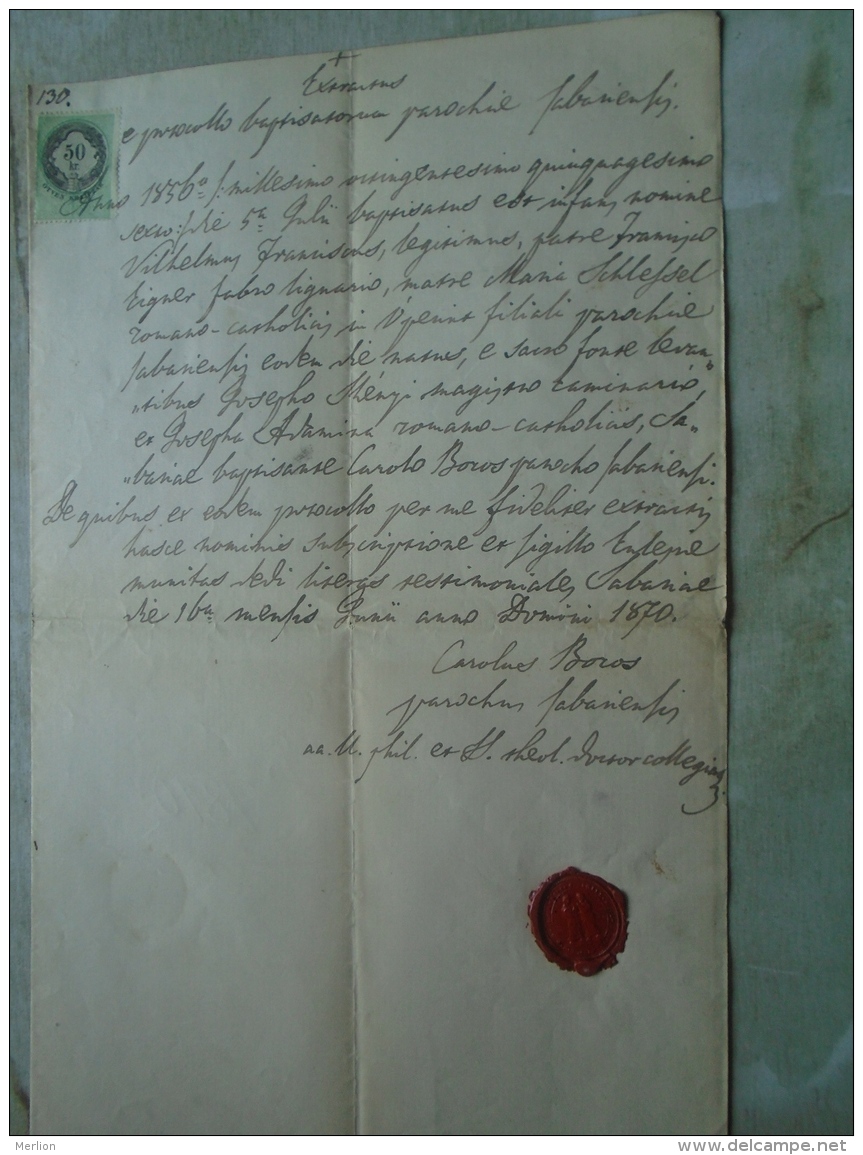 130.
+
Extractus
e protocollo baptisatorum parochiæ sabariensis.
50
KR
Anno 1856º /: millesimo octingentesimo quinquagesimo
sexto :/ die 5ª Julii baptisatus est infans nomine
Vilhelmus Franciscus, legitimus, patre Francisco
Eigner fabro lignario, matre Maria Schlessel
romano-catholicis in Uperint filiali parochiæ
sabariensis eodem die natus, e sacro fonte levan„
„tibus Josepho Ményi magistro caminario,
et Josepha Adamina romano-catholicis, Sa„
„bariae baptisante Carolo Boros parocho sabariensi.
De quibus ex eodem protocollo per me fideliter extractis
hasce nominis subscriptione et sigillo Ecclesiæ
munitas dedi literas testimoniales Sabariae
die 16ª mensis Junii anno Domini 1870.
Carolus Boros
parochus sabariensis
aa. ll. phil. et ss. theol. doctor collegiatus
Merlion
www.delcampe.net